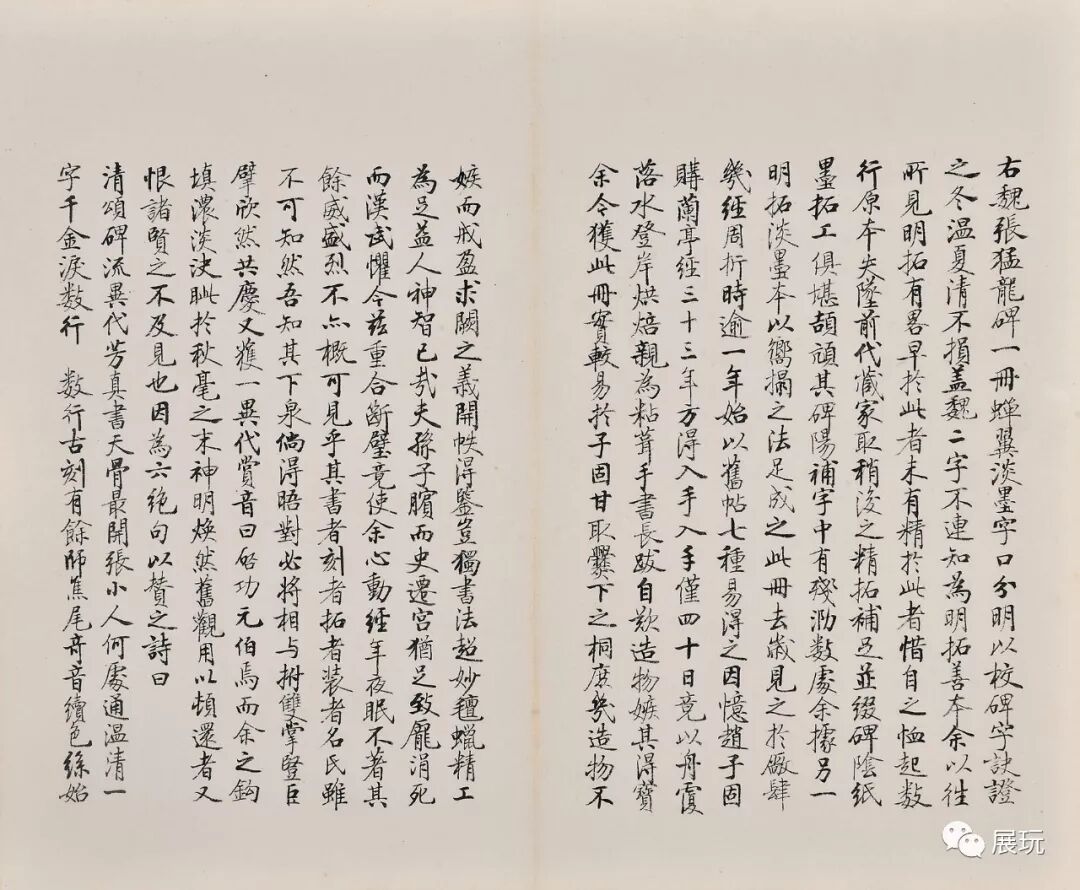 右魏張猛龍碑一冊蟬翼淡墨字口分明以校碑字訣證
之冬温夏清不損盖魏二字不連知為明拓善本余以往
所見明拓有畧早於此者未有精於此者惜自之恤起数
行原本失墜前代蔵家取稍後之精拓補足並綴碑陰紙
墨拓工俱堪頡頏其碑陽補字中有殘泐数處余據另一
明拓淡墨本以嚮搨之法足成之此冊去歲見之於廠肆
幾經周折時逾一年始以舊帖七種易得之因憶趙子固
購蘭亭經三十三年方得入手入手僅四十日竟以舟覆
落水登岸烘焙親為粘葺手書長跋自歎造物嫉其得寶
余今獲此冊實較易於子固甘取爨下之桐庶幾造物不
嫉而戒盈求闕之義開帙得鑒豈獨書法超妙氊蠟精工
為足益人神智已㢤夫孫子臏而史遷宫猶足致龐涓死
而漢武懼今兹重合斷璧竟使余心動經年夜眠不著其
餘威盛烈不亦概可見乎其書者刻者拓者装者名氏雖
不可知然吾知其下泉倘得晤對必將相与拊雙掌豎巨
擘欣然共慶又獲一異代賞音曰啓功元伯焉而余之鈎
填濃淡決眦於秋毫之末神明煥然舊觀用以頓還者又
恨諸賢之不及見也因為六絶句以賛之詩曰
清頌碑流異代芳真書天骨最開張小人何處通温清一
字千金淚数行　数行古刻有餘師焦尾奇音續色絲始
展玩